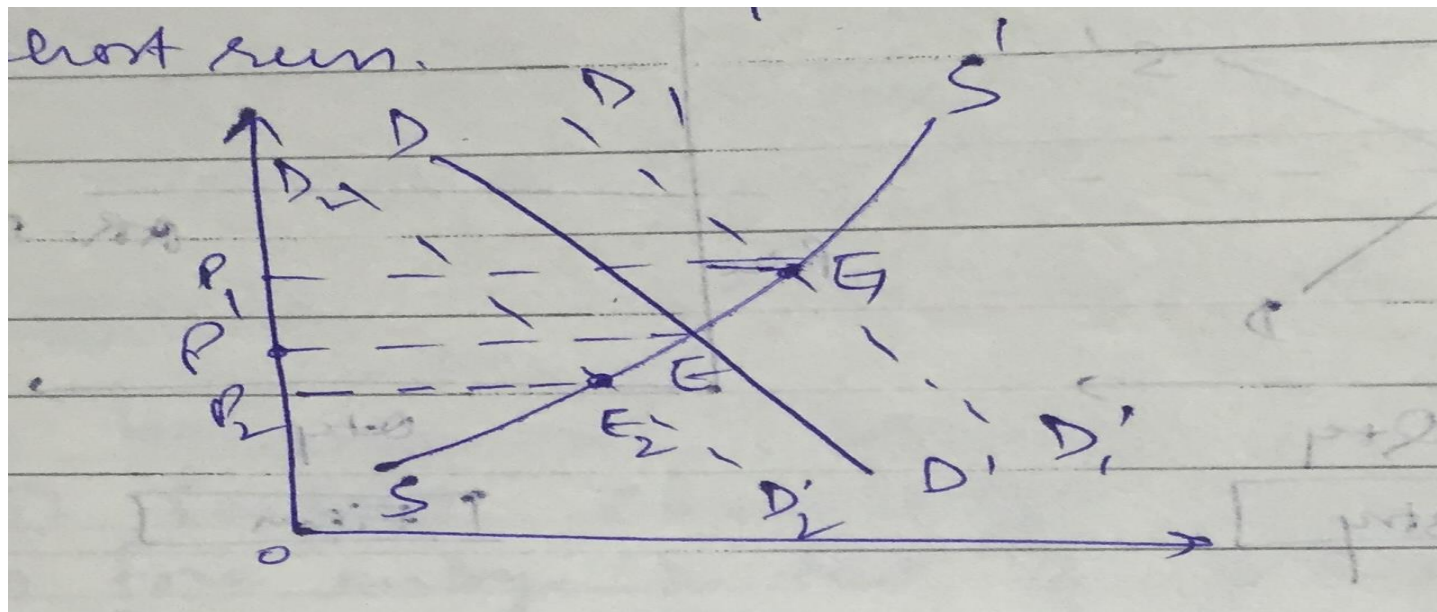 short run.
D₁
S'
D
D₂
P₁
E₁
P
E
P₂
E₂
D₁'
D'
S
D₂'
O